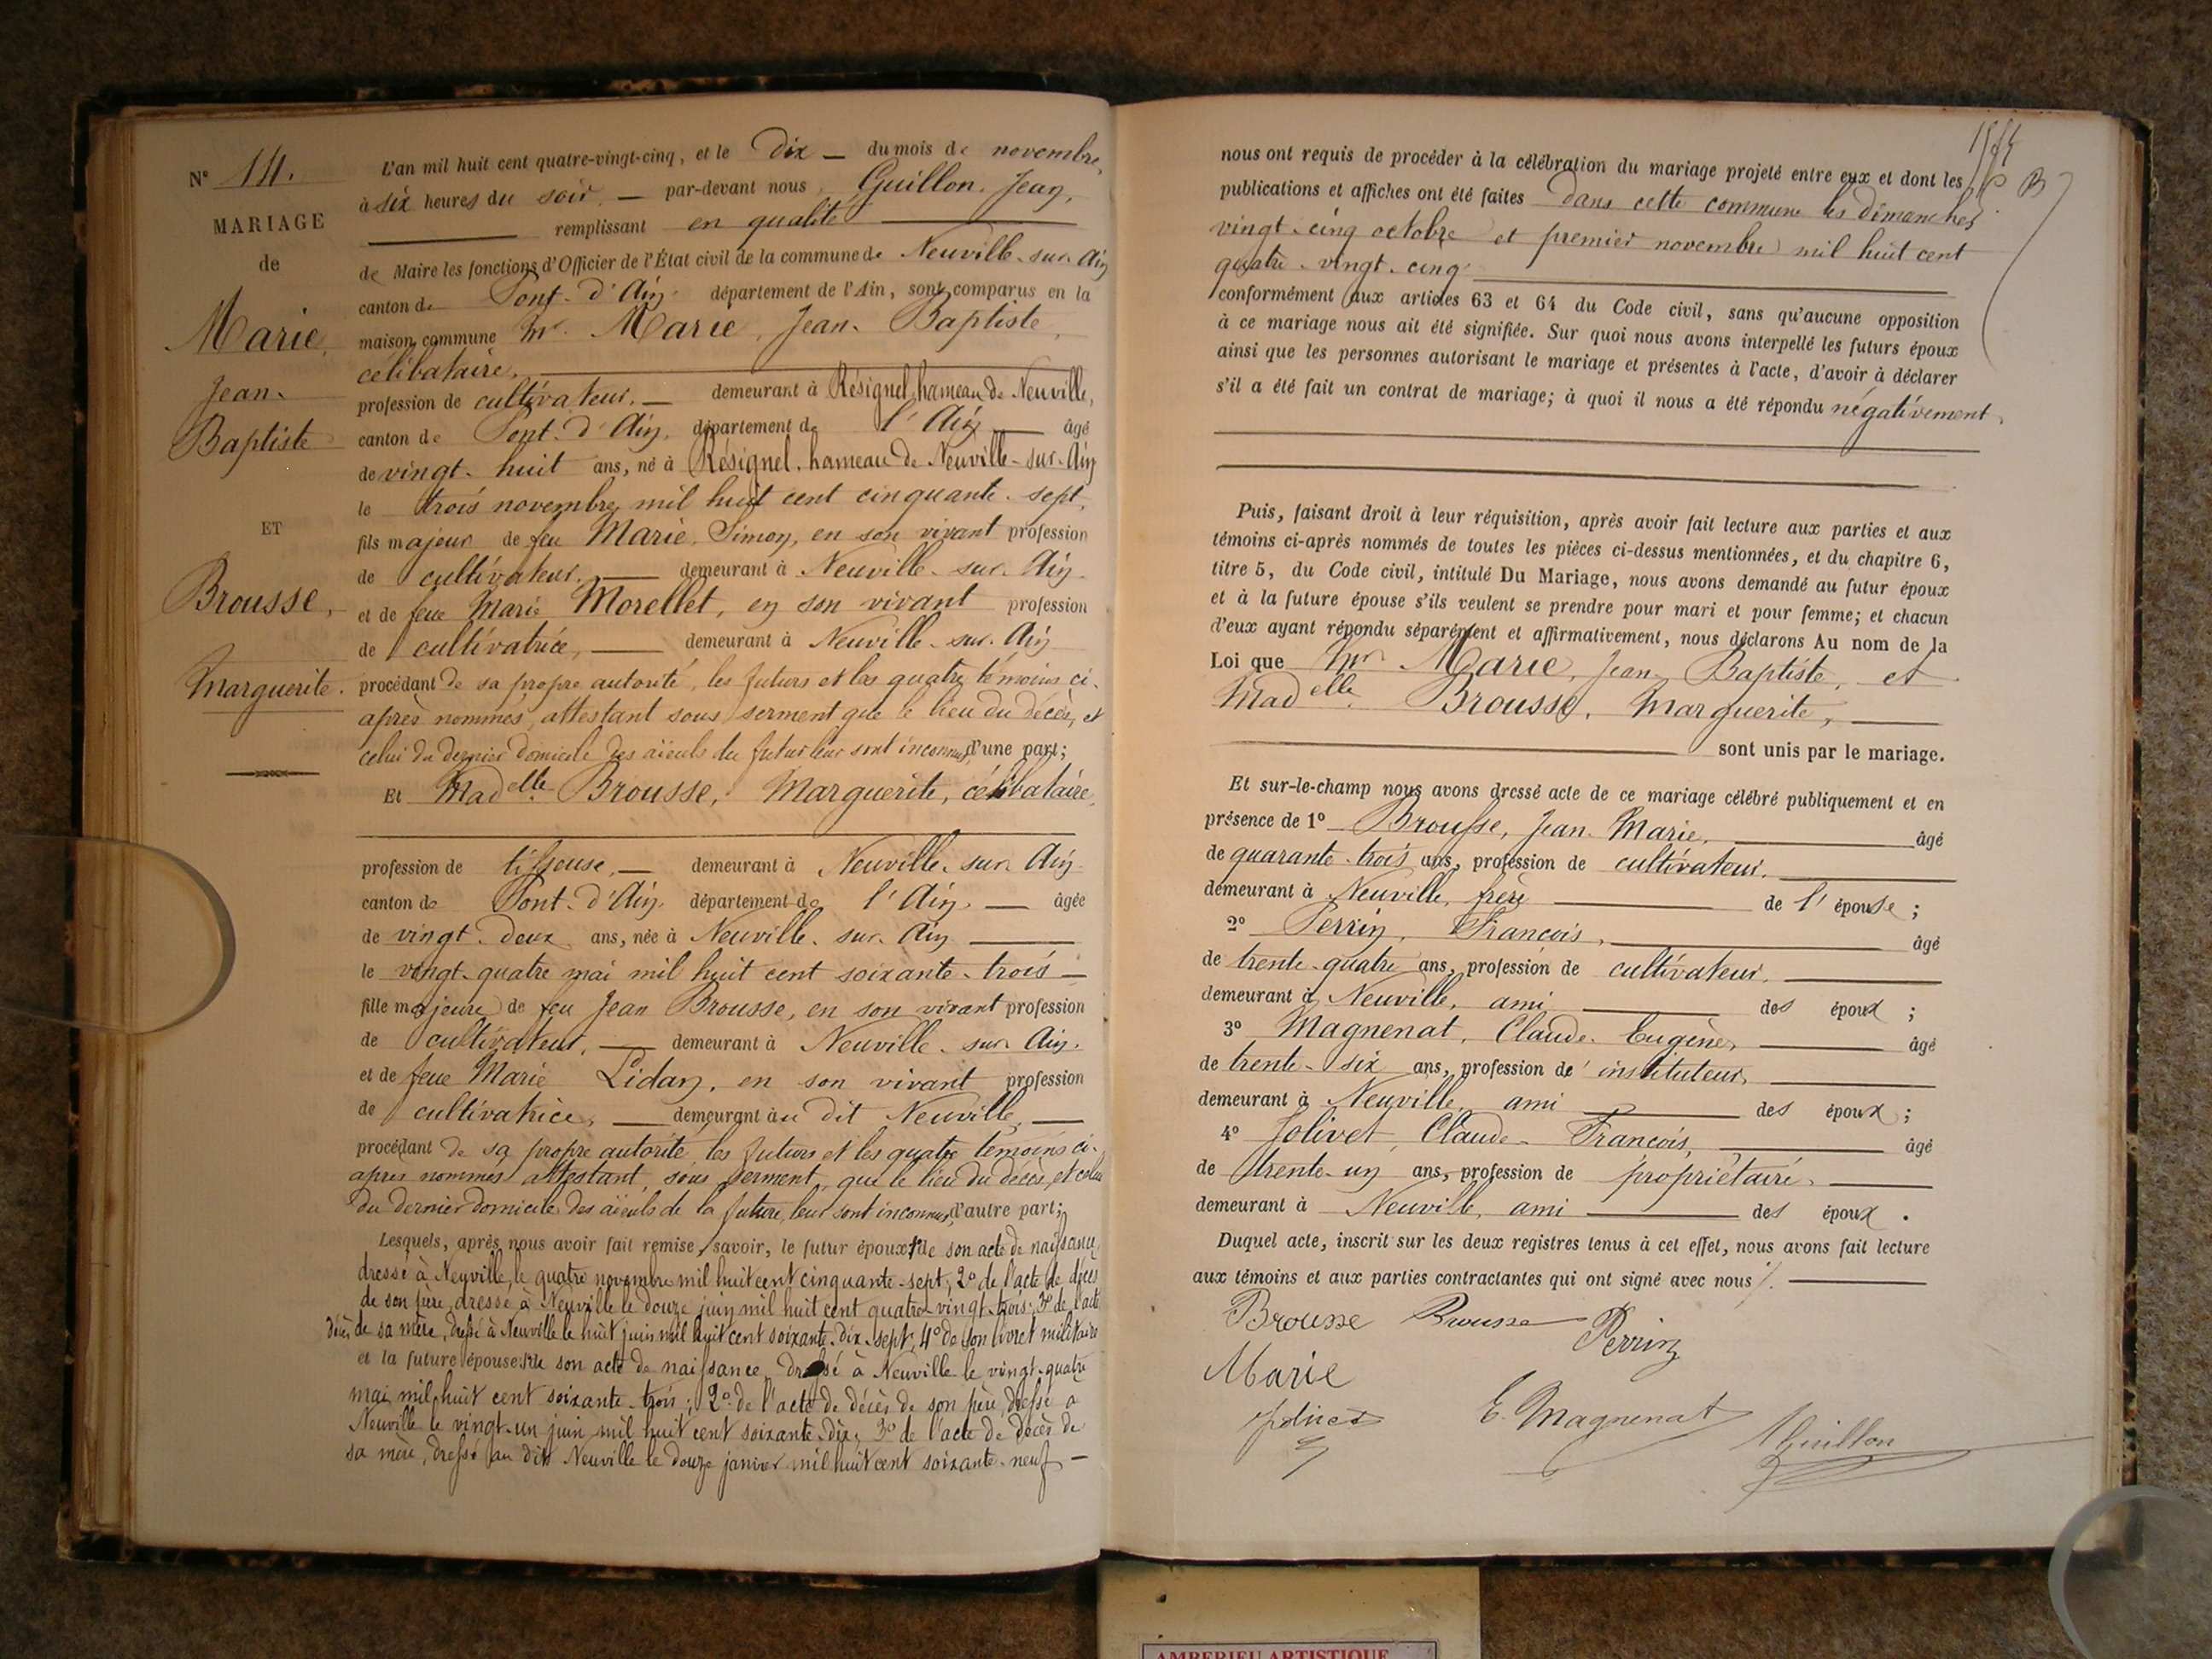 N° 14.
MARIAGE
de
Marie,
Jean-
Baptiste
ET
Brousse,
Marguerite.
L'an mil huit cent quatre-vingt-cinq, et le Dix — du mois de novembre,
à six heures du soir. — par-devant nous, Guillon, Jean,
remplissant en qualité
de Maire les fonctions d'Officier de l'État civil de la commune de Neuville-sur-Ain
canton de Pont-d'Ain département de l'Ain, sont comparus en la
maison commune Mr. Marie, Jean-Baptiste,
célibataire,
profession de cultivateur. — demeurant à Résignel, hameau de Neuville,
canton de Pont-d'Ain, département de l'Ain — âgé
de vingt-huit ans, né à Résignel, hameau de Neuville-sur-Ain
le trois novembre mil huit cent cinquante-sept,
fils majeur de feu Marie, Simon, en son vivant profession
de cultivateur, — demeurant à Neuville-sur-Ain
et de feue Marie Morellet, en son vivant profession
de cultivatrice, — demeurant à Neuville-sur-Ain
procédant de sa propre autorité, les futurs et les quatre témoins ci-
après nommés, attestant sous serment que le lieu du décès, et
celui du dernier domicile des aïeuls du futur leur sont inconnus, d'une part;
Et Madelle Brousse, Marguerite, célibataire,
profession de tisseuse, — demeurant à Neuville-sur-Ain
canton de Pont-d'Ain, département de l'Ain. — âgée
de vingt-deux ans, née à Neuville-sur-Ain
le vingt-quatre mai mil huit cent soixante-trois —
fille majeure de feu Jean Brousse, en son vivant profession
de cultivateur, — demeurant à Neuville-sur-Ain.
et de feue Marie Lidan, en son vivant profession
de cultivatrice, — demeurant au dit Neuville, —
procédant de sa propre autorité les futurs et les quatre témoins ci-
après nommés attestant, sous serment, que le lieu du décès, et celui
du dernier domicile des aïeuls de la future, leur sont inconnus, d'autre part;
Lesquels, après nous avoir fait remise, savoir, le futur époux 1° de son acte de naissance
dressé à Neuville, le quatre novembre mil huit cent cinquante-sept; 2° de l'acte de décès
de son père, dressé à Neuville le douze juin mil huit cent quatre-vingt-trois; 3° de l'acte
décès de sa mère, dressé à Neuville le huit juin mil huit cent soixante-dix-sept; 4° de son livret militaire
et la future épouse: 1° de son acte de naissance dressé à Neuville le vingt-quatre
mai mil huit cent soixante-trois; 2° de l'acte de décès de son père, dressé à
Neuville le vingt-un juin mil huit cent soixante-dix; 3° de l'acte de décès de
sa mère, dressé au dit Neuville le douze janvier mil huit cent soixante-neuf —
nous ont requis de procéder à la célébration du mariage projeté entre eux et dont les
publications et affiches ont été faites dans cette commune les dimanches
vingt-cinq octobre et premier novembre mil huit cent
quatre-vingt-cinq
conformément aux articles 63 et 64 du Code civil, sans qu'aucune opposition
à ce mariage nous ait été signifiée. Sur quoi nous avons interpellé les futurs époux
ainsi que les personnes autorisant le mariage et présentes à l'acte, d'avoir à déclarer
s'il a été fait un contrat de mariage; à quoi il nous a été répondu négativement.
Puis, faisant droit à leur réquisition, après avoir fait lecture aux parties et aux
témoins ci-après nommés de toutes les pièces ci-dessus mentionnées, et du chapitre 6,
titre 5, du Code civil, intitulé Du Mariage, nous avons demandé au futur époux
et à la future épouse s'ils veulent se prendre pour mari et pour femme; et chacun
d'eux ayant répondu séparément et affirmativement, nous déclarons Au nom de la
Loi que Mr. Marie, Jean-Baptiste, et
Madelle Brousse, Marguerite, —
sont unis par le mariage.
Et sur-le-champ nous avons dressé acte de ce mariage célébré publiquement et en
présence de 1° Brousse, Jean-Marie, âgé
de quarante-trois ans, profession de cultivateur,
demeurant à Neuville, frère de l'épouse;
2° Perrin, François, âgé
de trente-quatre ans, profession de cultivateur,
demeurant à Neuville, ami des époux;
3° Magnenat, Claude-Eugène, âgé
de trente-six ans, profession d'instituteur,
demeurant à Neuville, ami des époux;
4° Jolivet, Claude-François, âgé
de trente-un ans, profession de propriétaire,
demeurant à Neuville, ami des époux.
Duquel acte, inscrit sur les deux registres tenus à cet effet, nous avons fait lecture
aux témoins et aux parties contractantes qui ont signé avec nous
Brousse Brousse
Perrin
Marie
Jolivet E. Magnenat
Guillon
AMBERIEU ARTISTIQUE